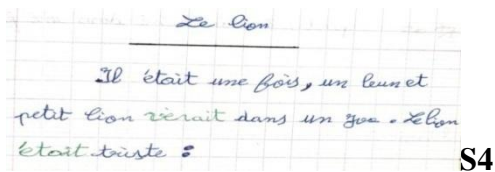 Le lion
Il était une fois, un leun et
petit lion vèrait dans un yoo. Le lion
était triste :
S4